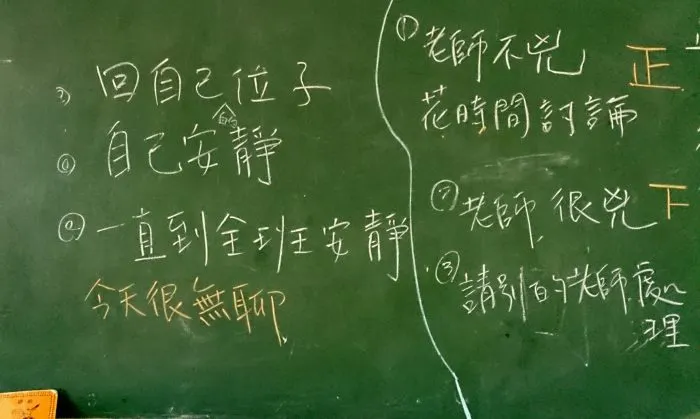 ③ 回自己位子
④ 自己安靜
的
② 一直到全班安靜
今天很無聊
① 老師不兇 正
花時間討論
② 老師很兇 下
③ 請別的老師處
理